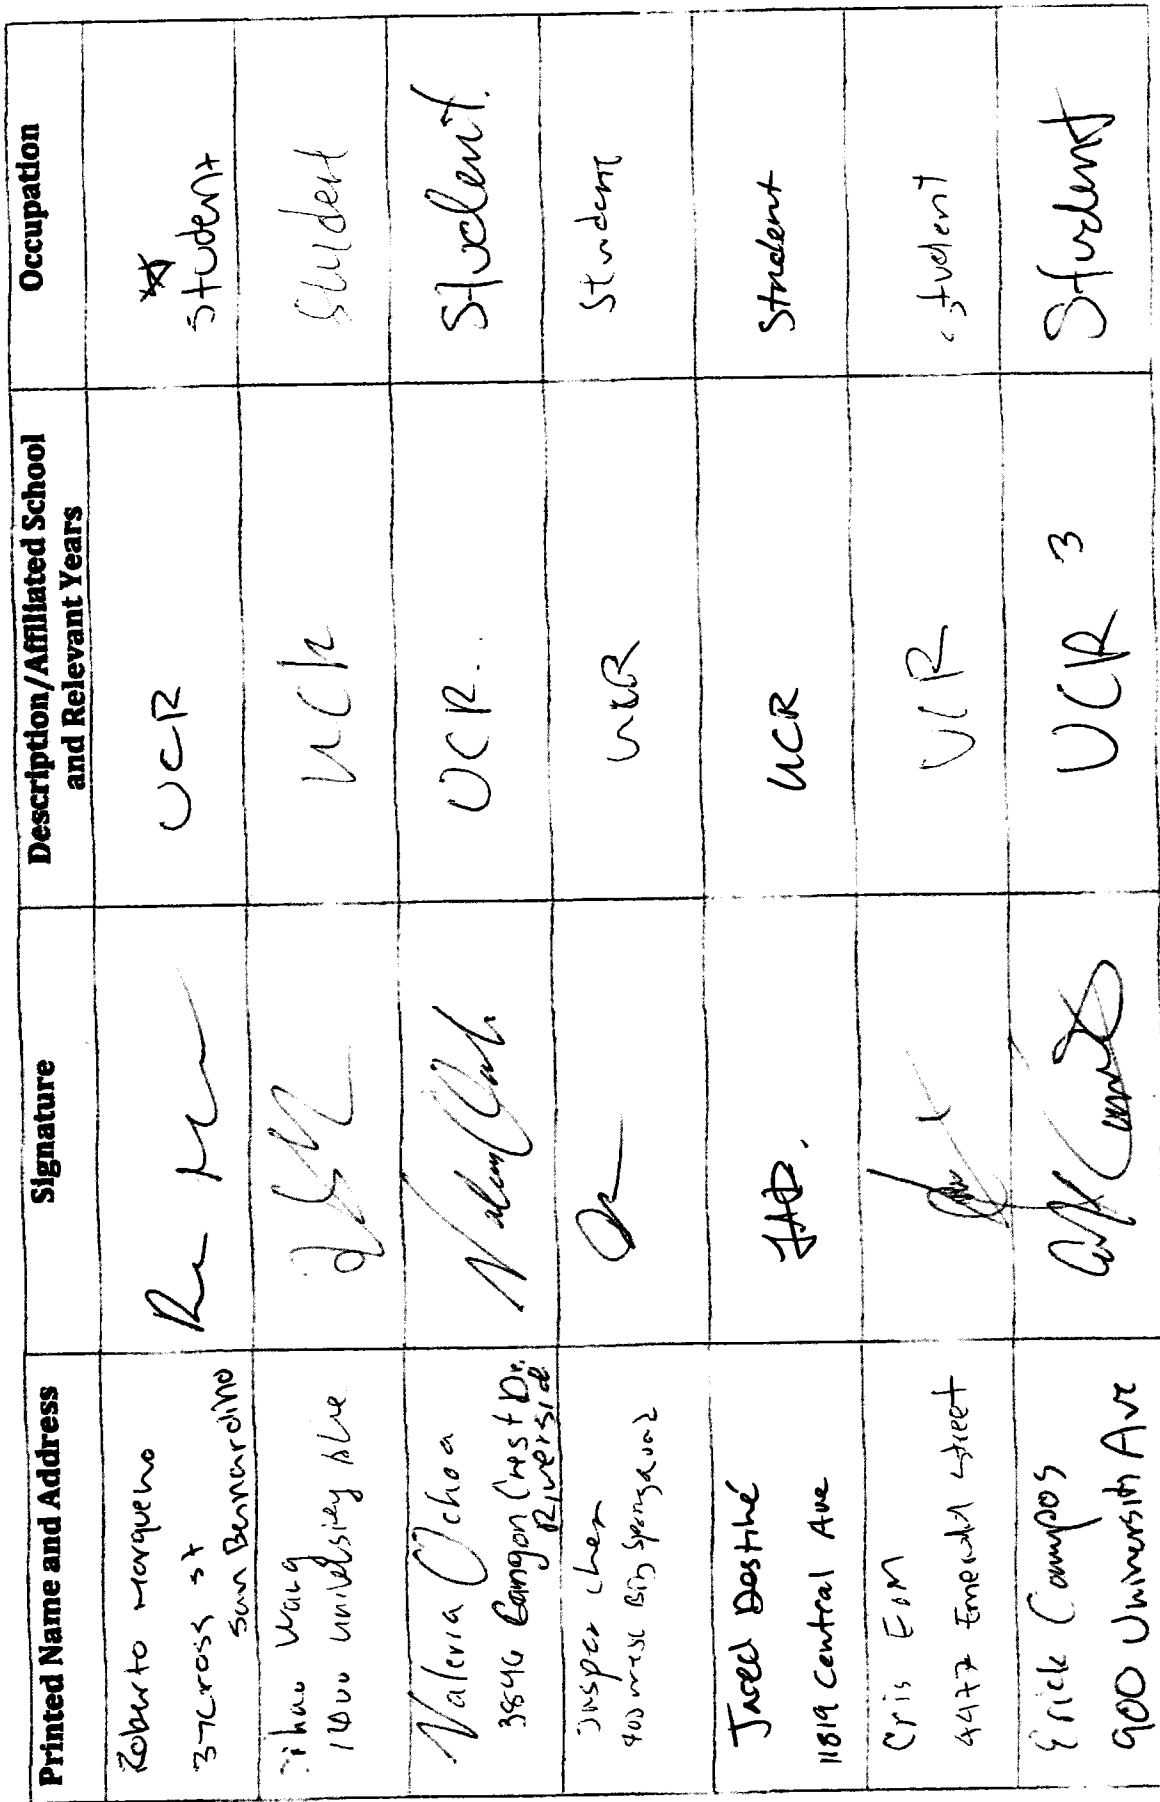 Printed Name and Address
Signature
Description/Affiliated School
and Relevant Years
Occupation
Roberto Marqueno
St
San Bernardino
UCR
Student
UCR
Student
Valeria Ochoa
3846 Canyon Crest Dr.
Riverside
UCR..
Student.
Jasper Chen
UCR
Student
Jared Dostihé
11819 Central Ave
UCR
Student
Cris
4477 Emerald Street
UCR
Student
Erick Campos
900 University Ave
UCR 3
Student